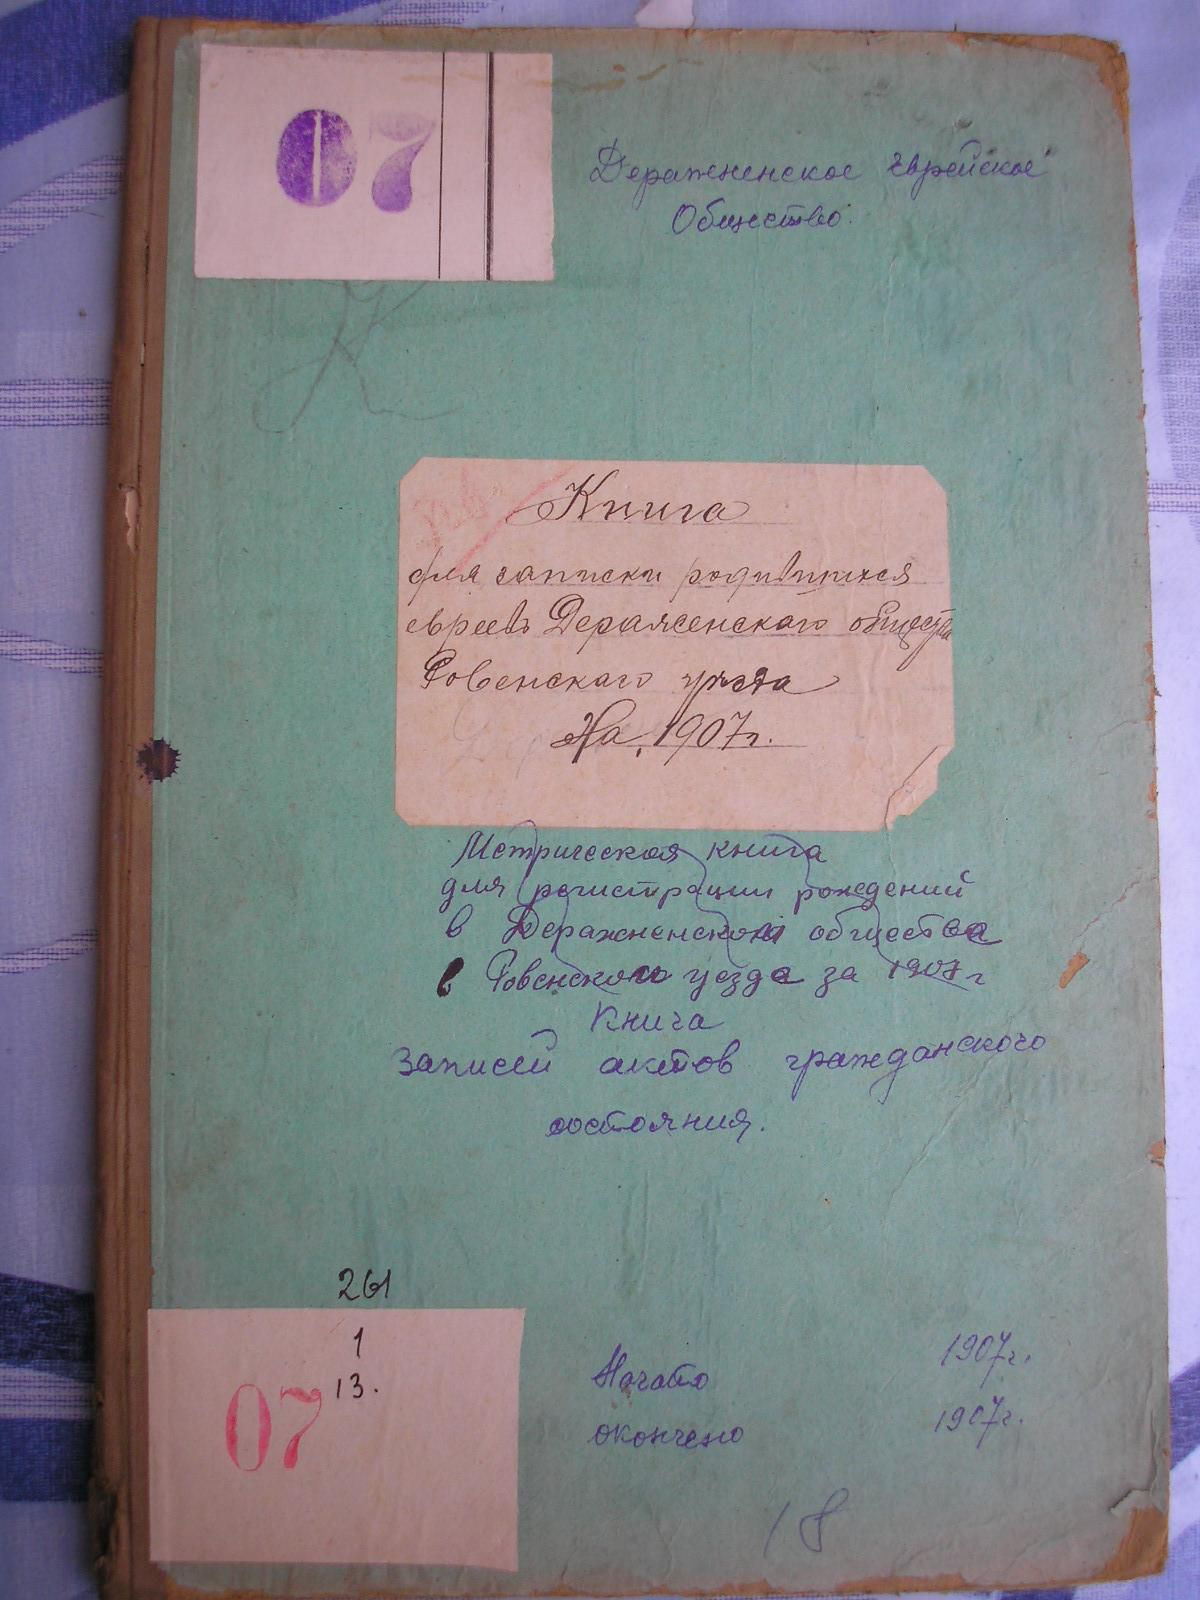 07
Деражненское Еврейское
Общество.
Книга
для записки родившихся
евреевъ Деражненскаго общества
Ровенскаго уѣзда
На 1907г.
Метрическая книга
для регистрации рождений
в Деражненском общества
в Ровенском уезда за 1907г
Книга
Записей актов гражданского
состояния.
261
1
13.
07
Начато 1907г.
окончено 1907г.
18